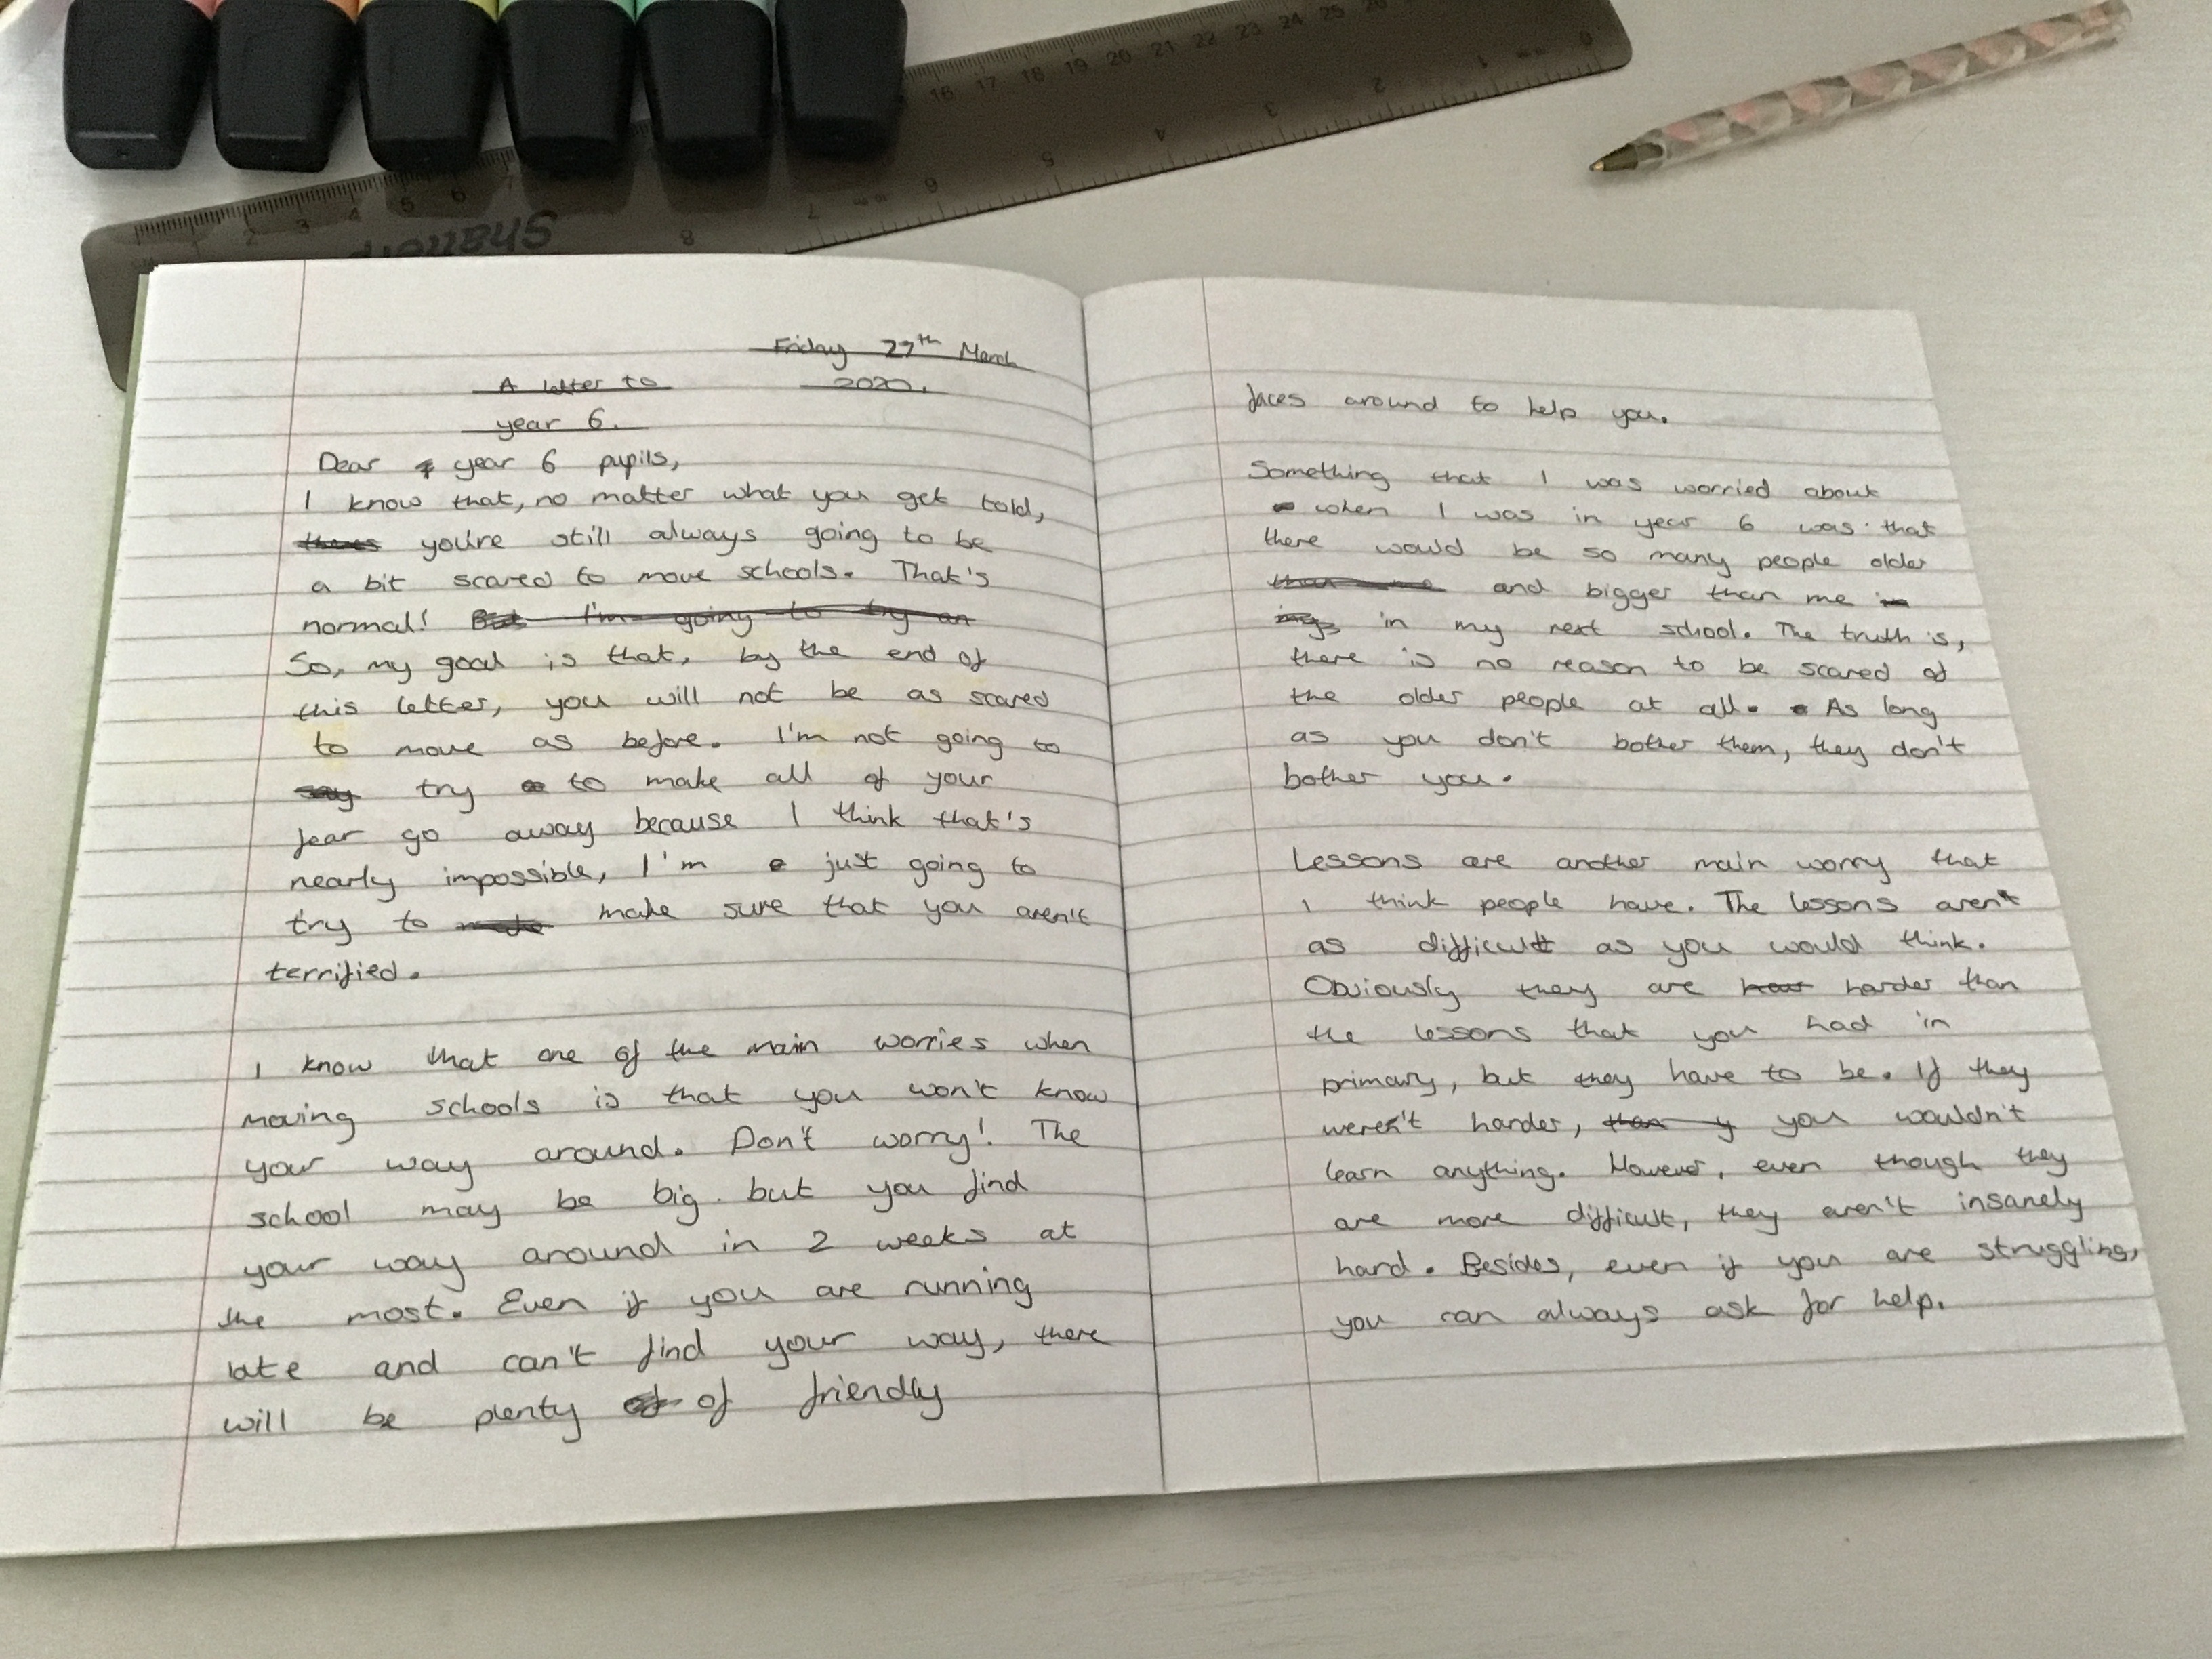 Friday 27th March
A letter to 2020.
year 6.
Dear year 6 pupils,
I know that, no matter what you get told,
theres you're still always going to be
a bit scared to move schools. That's
normal! But I'm going to try an
So, my goal is that, by the end of
this letter, you will not be as scared
to move as before. I'm not going to
say try to make all of your
fear go away because I think that's
nearly impossible, I'm just going to
try to make make sure that you aren't
terrified.
I know that one of the main worries when
moving schools is that you won't know
your way around. Don't worry! The
school may be big. but you find
your way around in 2 weeks at
the most. Even if you are running
late and can't find your way, there
will be plenty of of friendly
faces around to help you.
Something that I was worried about
when I was in year 6 was that
there would be so many people older
than me and bigger than me in
in my next school. The truth is,
there is no reason to be scared of
the older people at all. As long
as you don't bother them, they don't
bother you.
Lessons are another main worry that
I think people have. The lessons aren't
as difficult as you would think.
Obviously they are har harder than
the lessons that you had in
primary, but they have to be. If they
weren't harder, than y you wouldn't
learn anything. However, even though they
are more difficult, they aren't insanely
hard. Besides, even if you are struggling,
you can always ask for help.
Shatterp
1 2 3 4 5 6 7 16 17 18 19 20 21 22 23 24 25 26
0 1 2 3 4 5 6 7 8